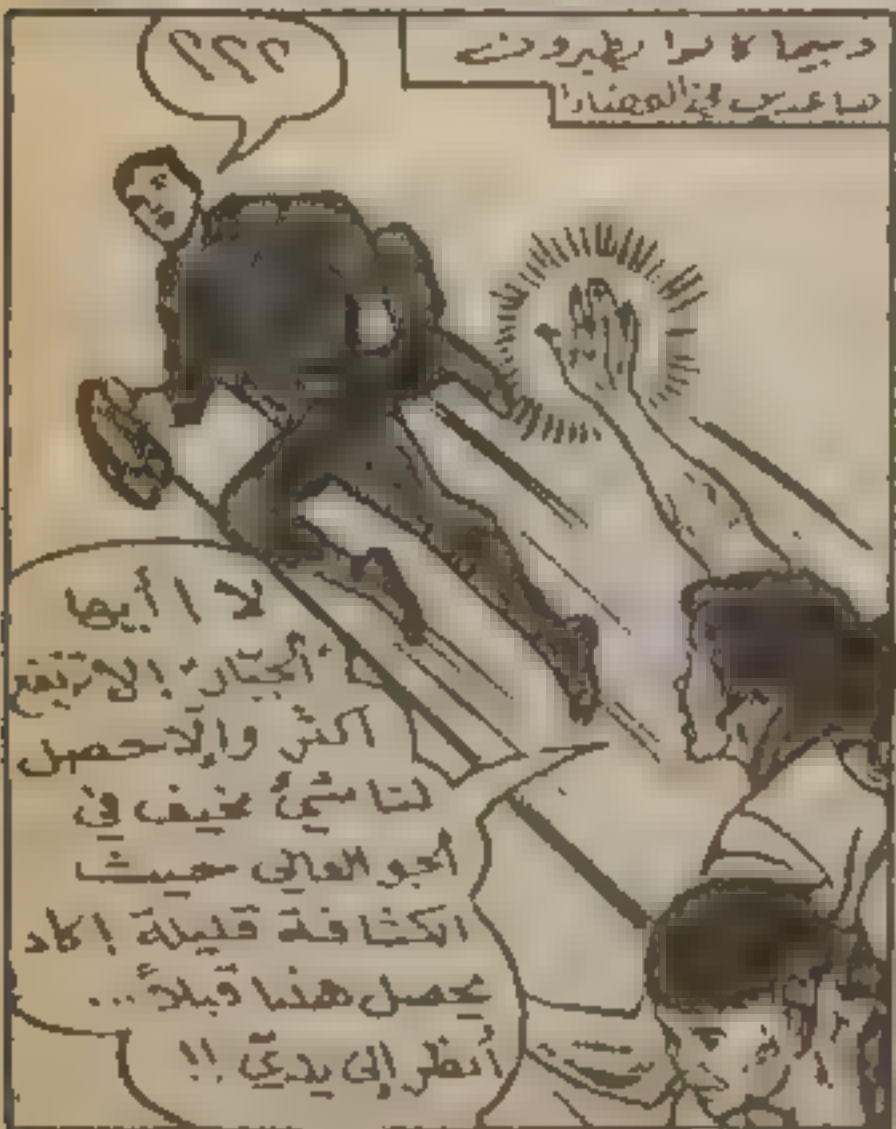 وبينما كانوا يطيرون
صاعدين في الفضاء!
؟؟؟
لا! أيها
"الجبّار"! لا ترتفع
أكثر وإلّا حصل
لنا شيءٌ مخيف في
الجو العالي حيث
الكثافة قليلة! كاد
يحصل هذا قبلاً...
أنظر إلى يديّ!!